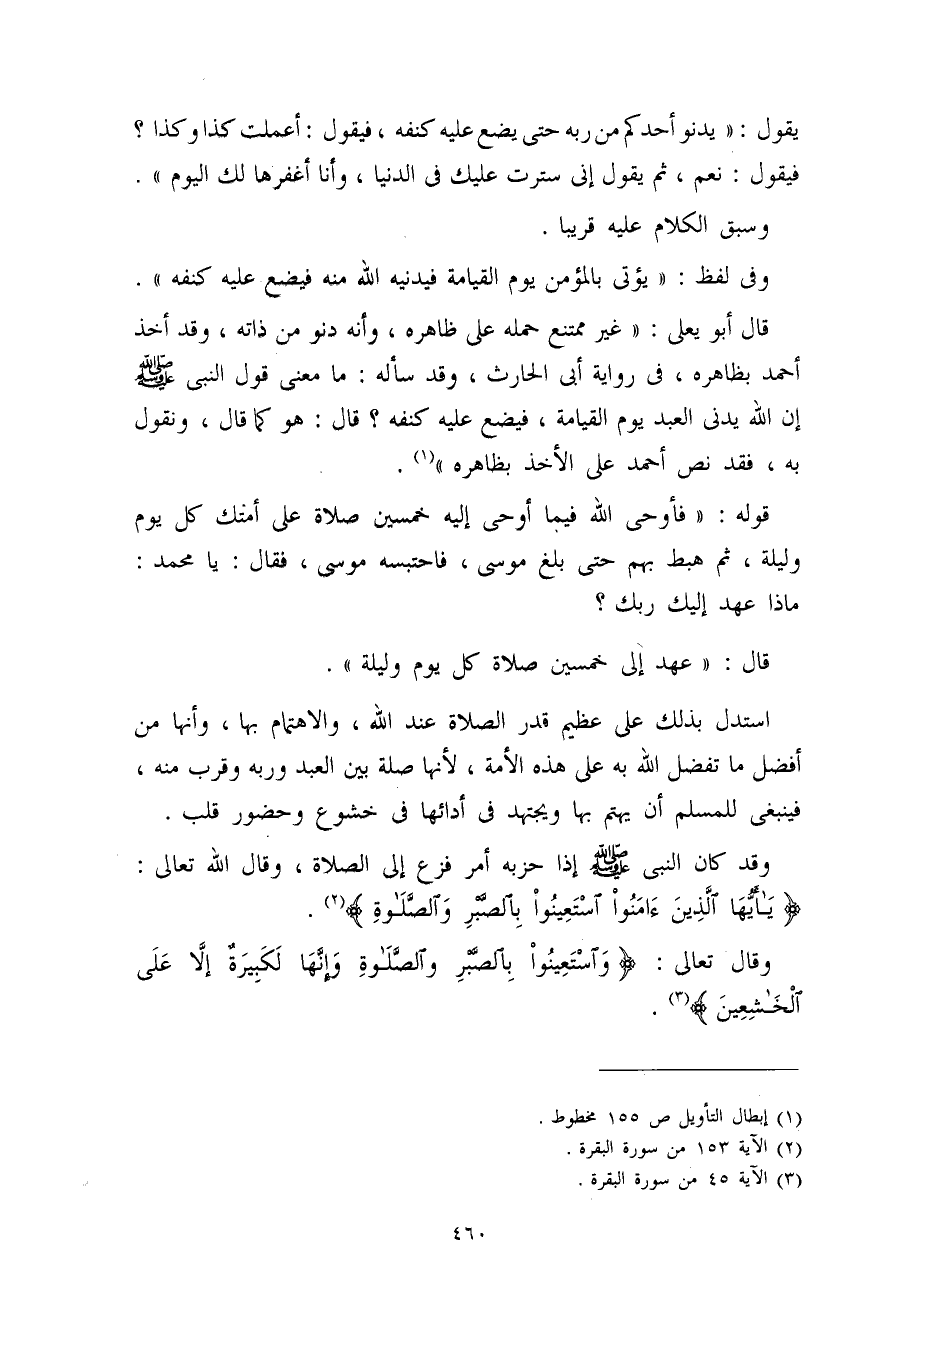 يقول : « يدنو أحدكم من ربه حتى يضع عليه كنفه ، فيقول : أعملت كذا وكذا ؟
فيقول : نعم ، ثم يقول إنى سترت عليك فى الدنيا ، وأنا أغفرها لك اليوم » .
وسبق الكلام عليه قريبا .
وفى لفظ : « يؤتى بالمؤمن يوم القيامة فيدنيه الله منه فيضع عليه كنفه » .
قال أبو يعلى : « غير ممتنع حمله على ظاهره ، وأنه دنو من ذاته ، وقد أخذ
أحمد بظاهره ، فى رواية أبى الحارث ، وقد سأله : ما معنى قول النبى ﷺ
إن الله يدنى العبد يوم القيامة ، فيضع عليه كنفه ؟ قال : هو كما قال ، ونقول
به ، فقد نص أحمد على الأخذ بظاهره »(١) .
قوله : « فأوحى الله فيما أوحى إليه خمسين صلاة على أمتك كل يوم
وليلة ، ثم هبط بهم حتى بلغ موسى ، فاحتبسه موسى ، فقال : يا محمد :
ماذا عهد إليك ربك ؟
قال : « عهد إلى خمسين صلاة كل يوم وليلة » .
استدل بذلك على عظيم قدر الصلاة عند الله ، والاهتمام بها ، وأنها من
أفضل ما تفضل الله به على هذه الأمة ، لأنها صلة بين العبد وربه وقرب منه ،
فينبغى للمسلم أن يهتم بها ويجتهد فى أدائها فى خشوع وحضور قلب .
وقد كان النبى ﷺ إذا حزبه أمر فزع إلى الصلاة ، وقال الله تعالى :
﴿ يَـٰٓأَيُّهَا ٱلَّذِينَ ءَامَنُواْ ٱسْتَعِينُواْ بِٱلصَّبْرِ وَٱلصَّلَوٰةِ ﴾(٢) .
وقال تعالى : ﴿ وَٱسْتَعِينُواْ بِٱلصَّبْرِ وٱلصَّلَوٰةِ وَإِنَّهَا لَكَبِيرَةٌ إلَّا عَلَى
ٱلْخَـٰشِعِينَ ﴾(٣) .
(١) إبطال التأويل ص ١٥٥ مخطوط .
(٢) الآية ١٥٣ من سورة البقرة .
(٣) الآية ٤٥ من سورة البقرة .
٤٦٠